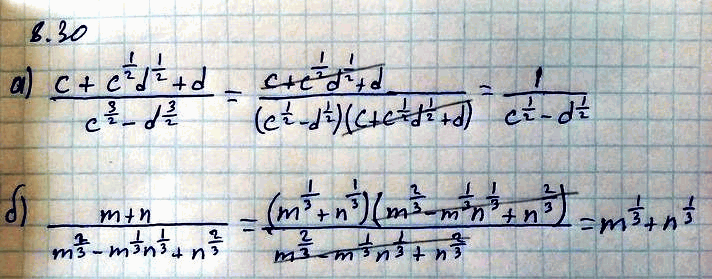 8.30
а) (c + c^{1/2}d^{1/2} + d)/(c^{3/2} - d^{3/2}) = (c + c^{1/2}d^{1/2} + d)/((c^{1/2} - d^{1/2})(c + c^{1/2}d^{1/2} + d)) = 1/(c^{1/2} - d^{1/2})
б) (m + n)/(m^{2/3} - m^{1/3}n^{1/3} + n^{2/3}) = ((m^{1/3} + n^{1/3})(m^{2/3} - m^{1/3}n^{1/3} + n^{2/3}))/(m^{2/3} - m^{1/3}n^{1/3} + n^{2/3}) = m^{1/3} + n^{1/3}